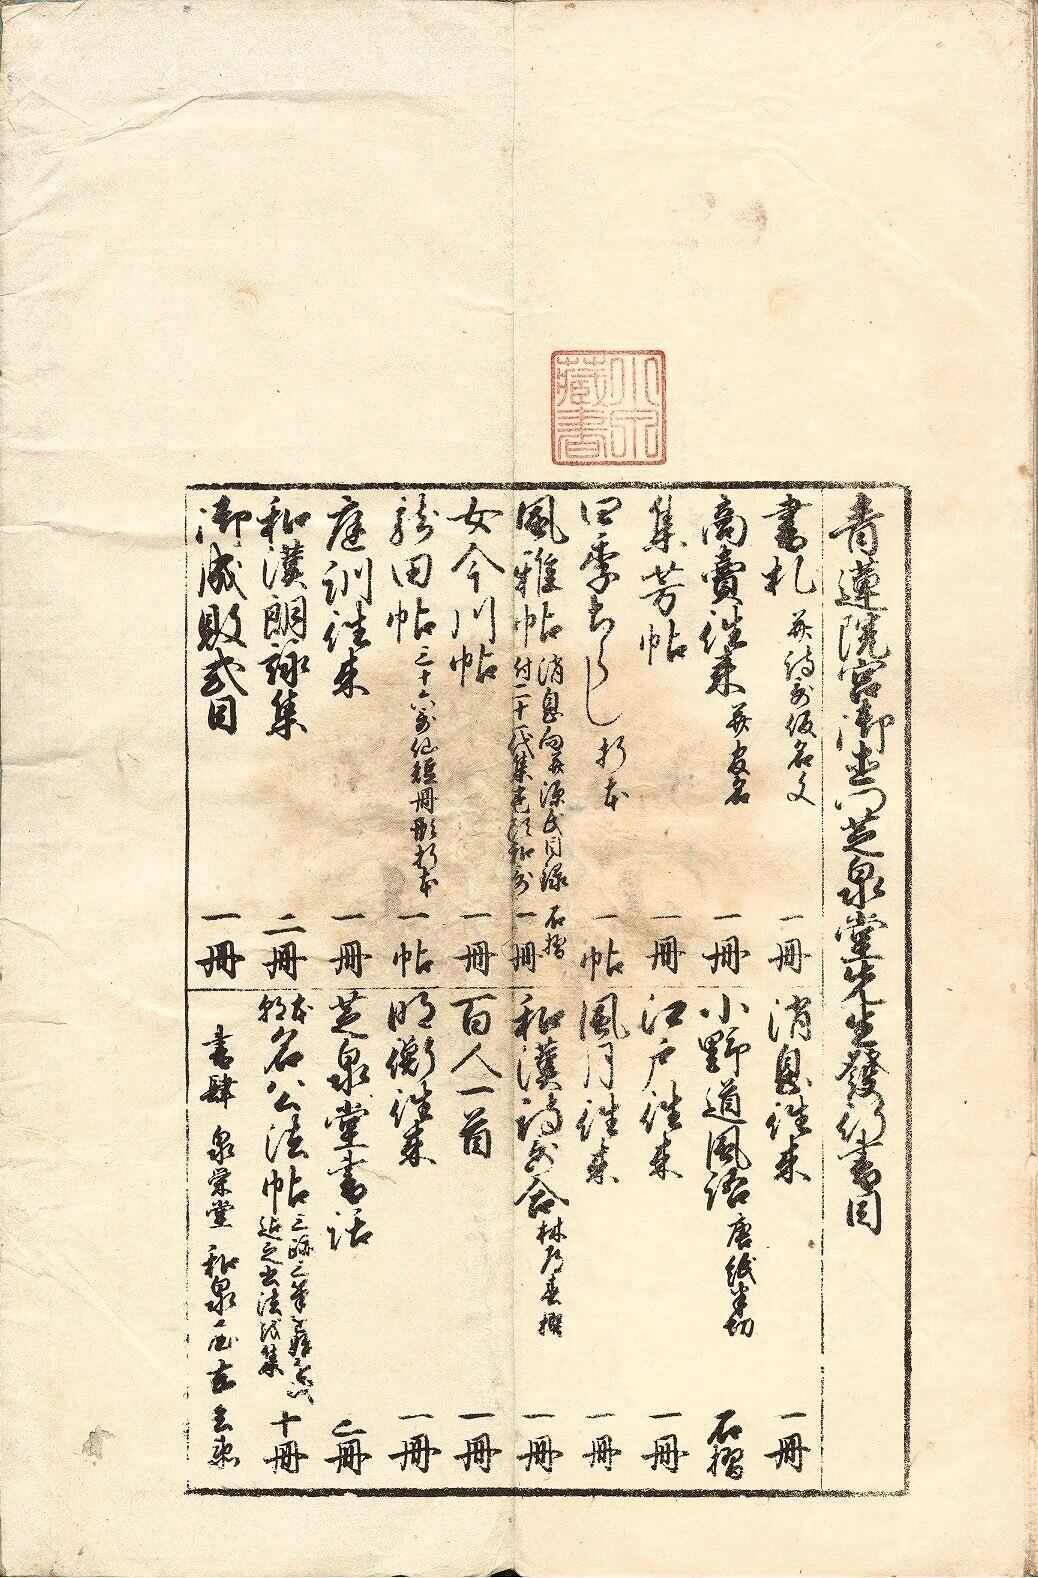 小泉
藏書
青蓮院宮御書門芝泉堂先生發行書目
書札 并詩哥仮名文 一冊
商賣往来 并官名 一冊
集芳帖 一冊
四季かしく 折本 一帖
風雅帖 消息向并源氏目録 石摺
付二十一代集巻頭和哥 一冊
女今川帖 一冊
龍田帖 三十六哥仙短冊形折本 一帖
庭訓往来 一冊
和漢朗詠集 二冊
御成敗式目 一冊
消息往来 一冊
小野道風帖 唐紙半切 石摺
江戸往来 一冊
風月往来 一冊
和漢詩哥合 林乃春撰 一冊
百人一首 一冊
明衡往来 一冊
芝泉堂書話 二冊
本朝名公法帖 三跡三筆 十冊
書肆 泉榮堂 和泉屋吉兵衛